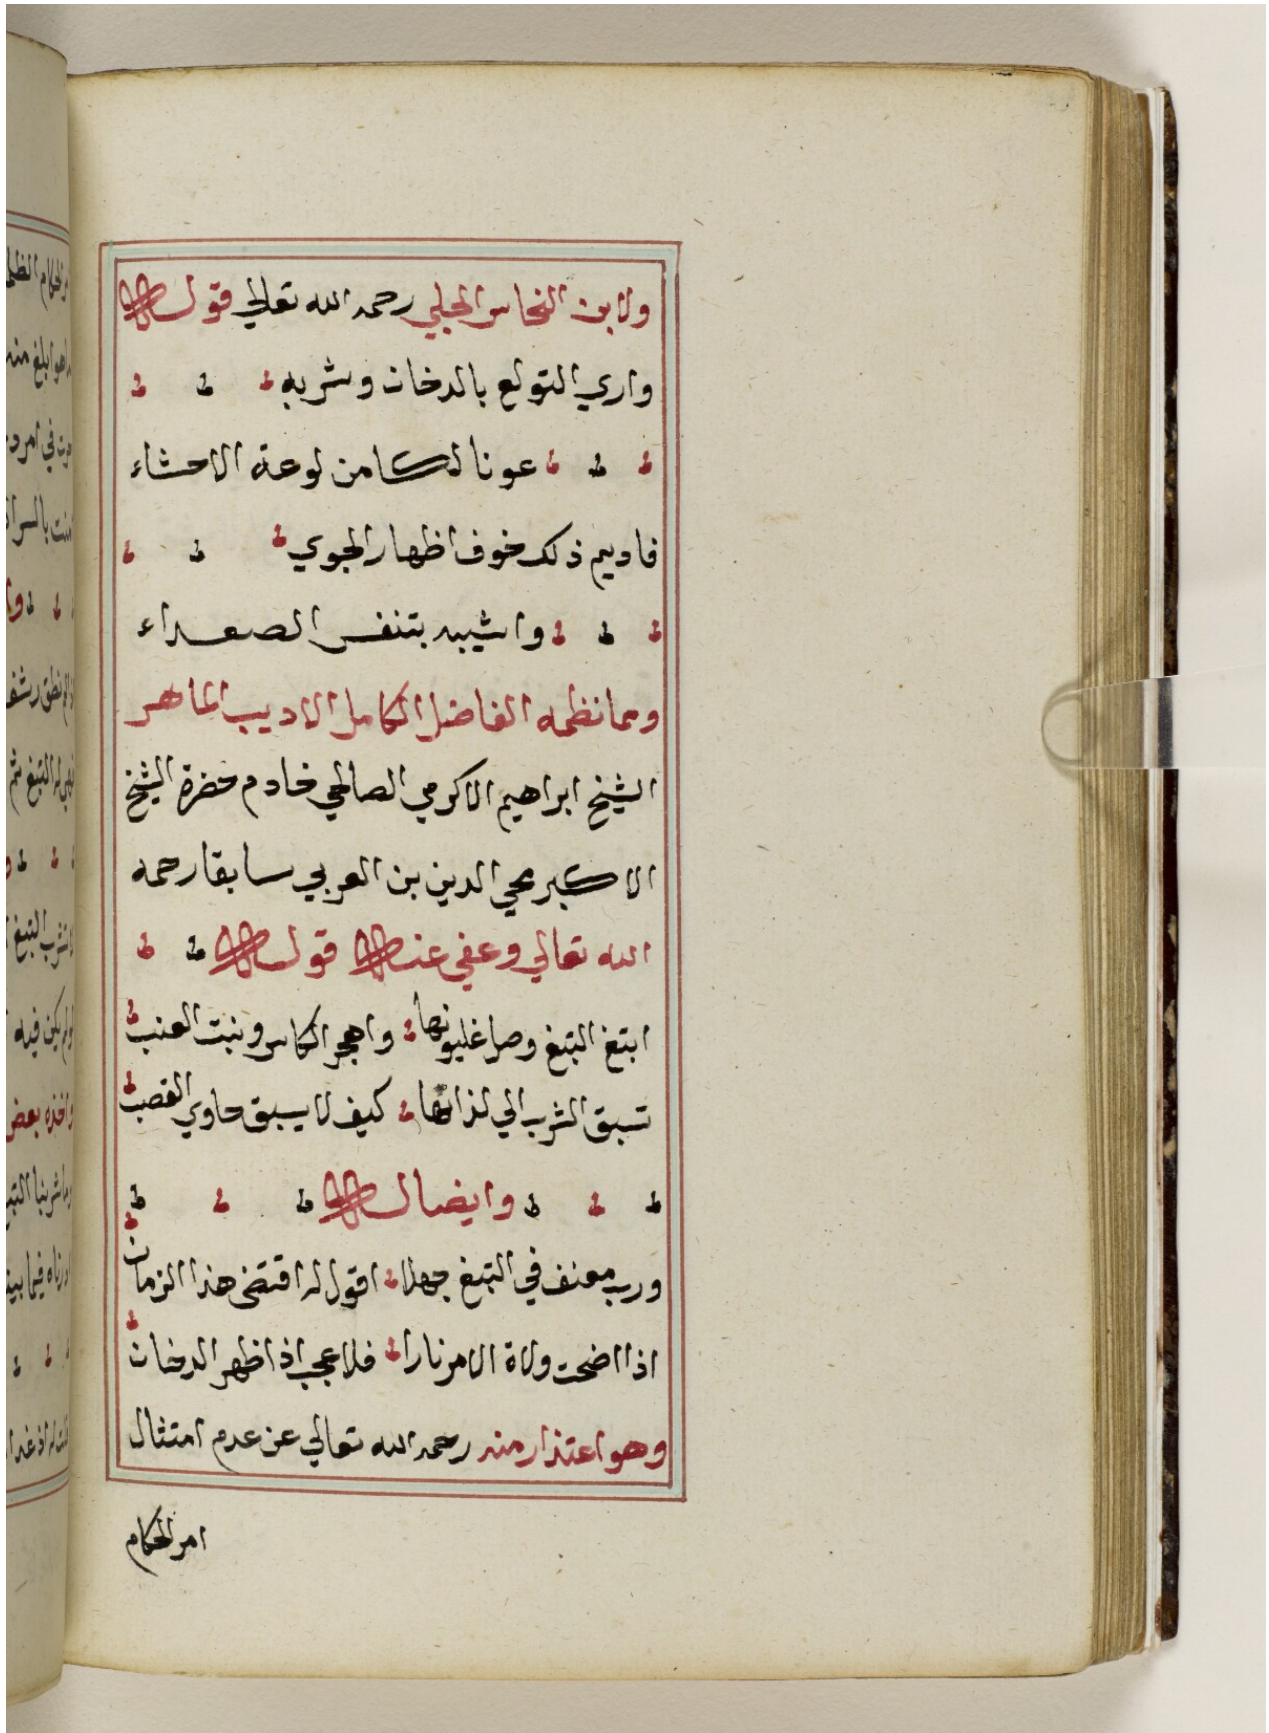 ولابن النحاس الحلبي رحمه الله تعالي قوله
واري التولع بالدخان وشربه
عونا لكامن لوعة الاحشاء
فاديم ذلك خوف اظهار الجوي
واشيبه بتنفس الصعداء
ومما نظمه الفاضل الكامل الاديب الماهر
الشيخ ابراهيم الاكرمي الصالحي خادم حضرة الشيخ
الاكبر محي الدين بن العربي سابقا رحمه
الله تعالي وعفي عنه قوله
ابتغ التبغ وصل غليونها واهجر الكاس وبنت العنب
تسبق الشرب الي لذاتها كيف لا يسبق حاوي القصب
وايضا له
ورب معنف في التبغ جهلا اقول له اقتضي هذا الزمان
اذا اضحت ولاة الامر نارا فلا عجب اذا ظهر الدخان
وهو اعتذار منه رحمه الله تعالي عن عدم امتثال
امر الحكام